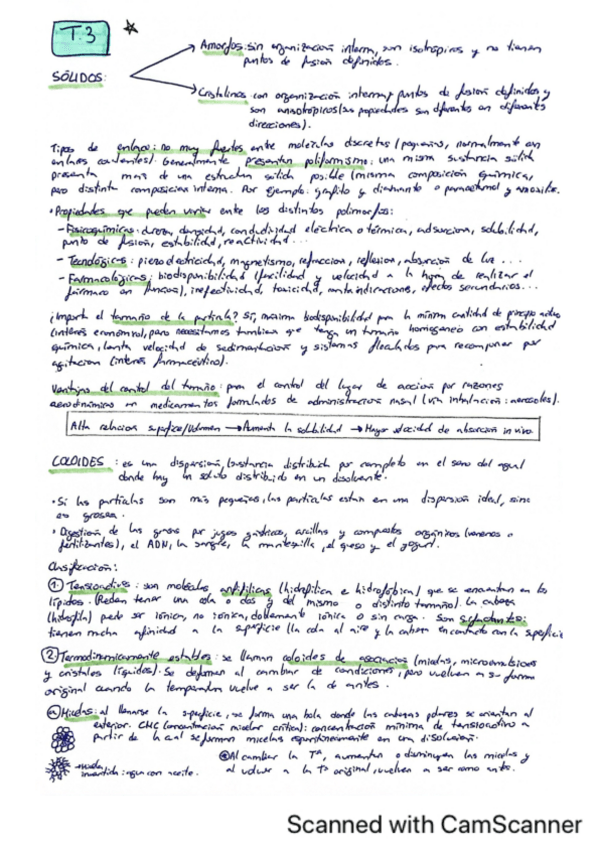 T.3
Amorfos: sin organización interna, son isotrópicos y no tienen
puntos de fusión definidos.
SÓLIDOS:
Cristalinos: con organización interna, puntos de fusión definidos y
son anisotrópicos (sus propiedades son diferentes en diferentes
direcciones).
Tipos de enlace: no muy fuertes entre moléculas discretas (pequeñas, normalmente con
enlaces covalentes). Generalmente presentan polimorfismo: una misma sustancia sólida
presenta más de una estructura sólida posible (misma composición química,
pero distinta composición interna. Por ejemplo: grafito y diamante o paracetamol y
• Propiedades que pueden variar entre los distintos polimorfos:
- Fisicoquímicas: dureza, densidad, conductividad eléctrica o térmica, adsorción, solubilidad,
punto de fusión, estabilidad, reactividad...
- Tecnológicas: piezoelectricidad, magnetismo, refracción, reflexión, absorción de luz...
- Farmacológicas: biodisponibilidad (facilidad y velocidad a la hora de realizar el
fármaco su función), inefectividad, toxicidad, contraindicaciones, efectos secundarios...
¿Importa el tamaño de la partícula? Sí, máxima biodisponibilidad para la mínima cantidad de principio activo
(interés económico), pero necesitamos también que tenga un tamaño homogéneo con estabilidad
química, lenta velocidad de sedimentación y sistemas floculados para recomponer por
agitación (interés farmacéutico).
Ventajas del control del tamaño: para el control del lugar de acción por razones
aerodinámicas en medicamentos formulados de administración nasal (vía inhalación: aerosoles).
Alta relación superficie/volumen → Aumenta la solubilidad → Mayor velocidad de absorción in vivo
COLOIDES: es una dispersión, (sustancia distribuida por completo en el seno del agua)
donde hay un soluto distribuido en un disolvente.
• Si las partículas son más pequeñas, las partículas están en una dispersión ideal, sino
es grosera.
• Digestión de las grasas por jugos gástricos, arcillas y compuestos orgánicos (venenos o
fertilizantes), el ADN, la sangre, la mantequilla, el queso y el yogurt.
Clasificación:
① Tensioactivos: son moléculas anfifílicas (hidrofílica e hidrofóbica) que se encuentran en los
lípidos. (Pueden tener una cola o dos y del mismo o distinto tamaño). La cabeza
(hidrofila) puede ser iónica, no iónica, doblemente iónica o sin carga. Son surfactantes:
tienen mucha afinidad a la superficie (la cola al aire y la cabeza en contacto con la superficie
② Termodinámicamente estables: se llaman coloides de asociación (micelas, microemulsiones
y cristales líquidos). Se deforman al cambiar de condiciones, pero vuelven a su forma
original cuando la temperatura vuelve a ser la de antes.
ⓐ Micelas: al llenarse la superficie, se forma una bola donde las cabezas polares se orientan al
exterior. CMC (concentración micelar crítica): concentración mínima de tensioactivo a
partir de la cual se forman micelas espontáneamente en una disolución.
⊛ Al cambiar la Tª, aumentan o disminuyen las micelas y
→ Micela
invertida: agua con aceite.
al volver a la Tª original, vuelven a ser como antes.
Scanned with CamScanner